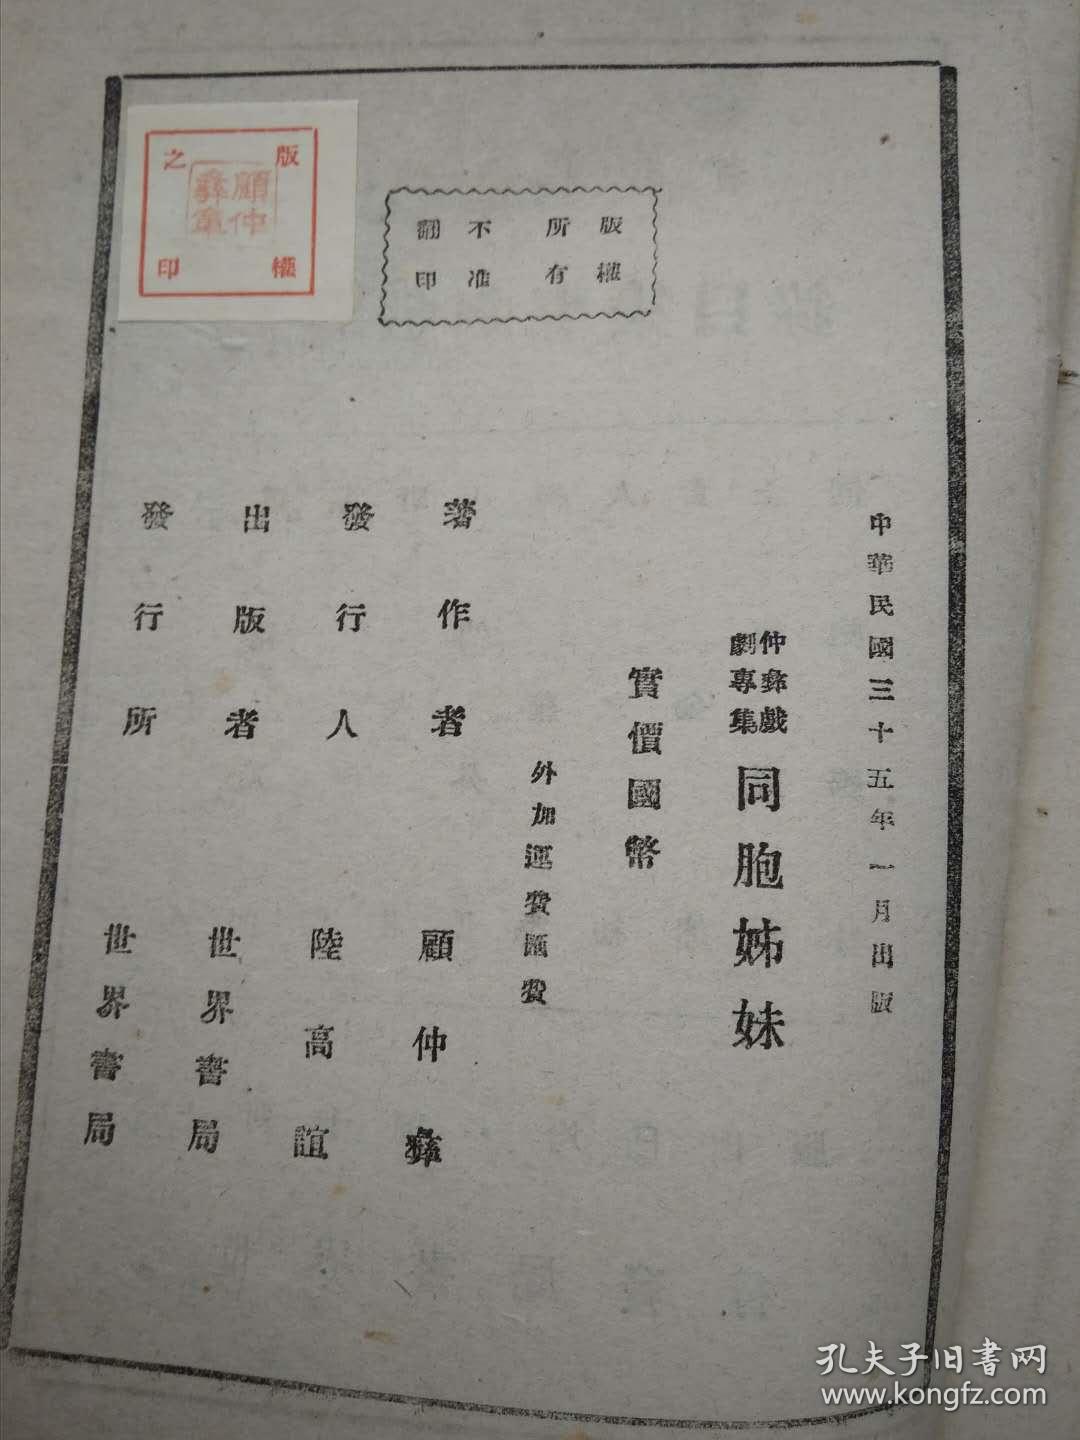 中華民國三十五年一月出版
仲彝戲
劇專集
同胞姊妹
實價國幣
外加運費匯費
著作者 顧仲彝
發行人 陸高誼
出版者 世界書局
發行所 世界書局
版權所有
不准翻印
版權之印
顧仲彝章
孔夫子旧書网
www.kongfz.com